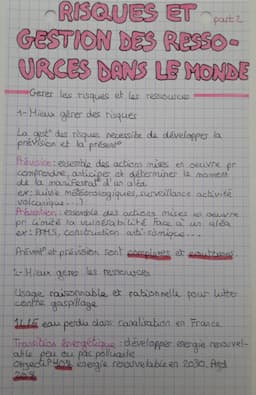 RISQUES ET
part 2
GESTION DES RESSO-
URCES DANS LE MONDE
Gérer les risques et les ressources
1- Mieux gérer des risques
La gest° des risques nécessite de développer la
prévision et la prévent°
Prévision: ensemble des actions mises en oeuvre pr
comprendre, anticiper et déterminer le moment
de la manifestat° d'un aléa
ex: suivie météorologiques, surveillance activité
volcanique...)
Prévention: ensemble des actions mises en oeuvre
pr limité la vulnérabilité face à un aléa
ex: PPMS, construction anti-sismique...
Prévent° et prévision sont complexes et
2- Mieux gérer les ressources
Usage raisonnable et rationnelle pour lutter
contre gaspillage
eau perdu dans canalisation en France
Transition énergétique: développer énergie renouvel-
able peu ou pas polluante
Object° 40% énergie renouvelable en 2030. Ajd